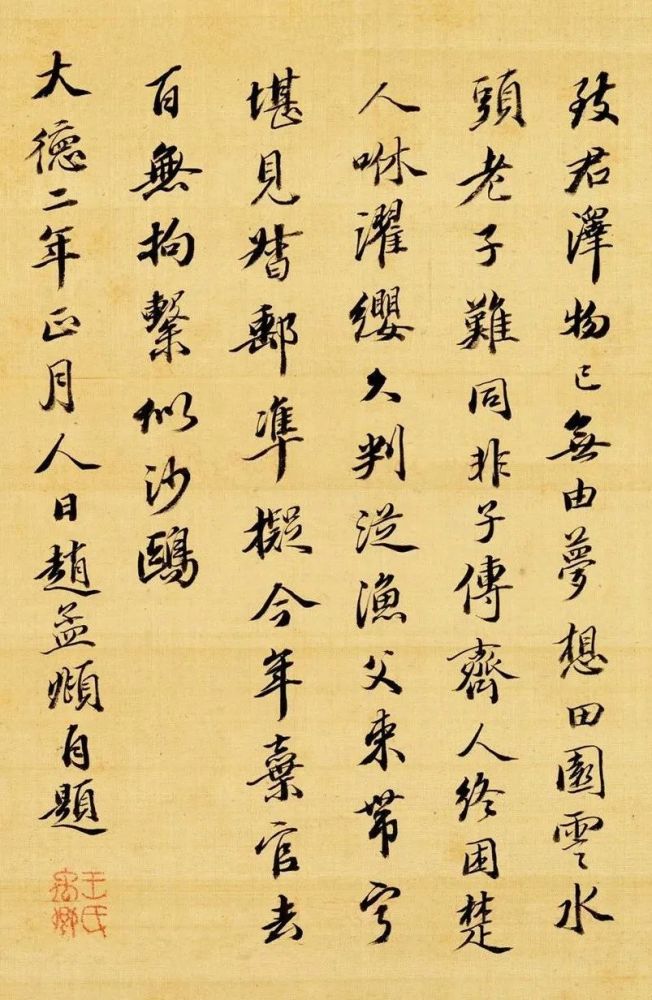 致君澤物已無由夢想田園雲水
頭老子難同非子傳齊人終困楚
人咻濯纓久判從漁父束帶寧
堪見督郵準擬今年棄官去
百無拘繫似沙鷗
大德二年正月人日趙孟頫自題
王氏
禹卿